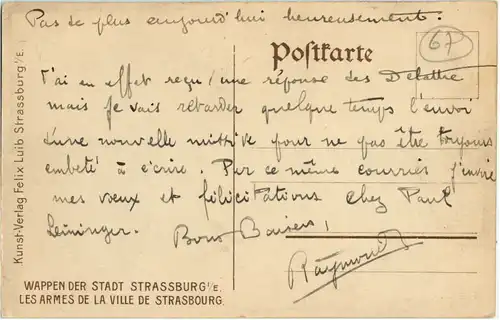 Pas de plus aujourd'hui heureusement.
Postkarte
67
J'ai en effet reçu une réponse des Delattre
mais je vais retarder quelque temps l'envoi
d'une nouvelle missive pour ne pas être toujours
embêté à écrire. Par ce même courrier j'envoie
mes vœux et félicitations chez Paul
Leininger. Bons Baisers,
Raymond
Kunst-Verlag Felix Luib Strassburg i/E.
WAPPEN DER STADT STRASSBURG i/E.
LES ARMES DE LA VILLE DE STRASBOURG.